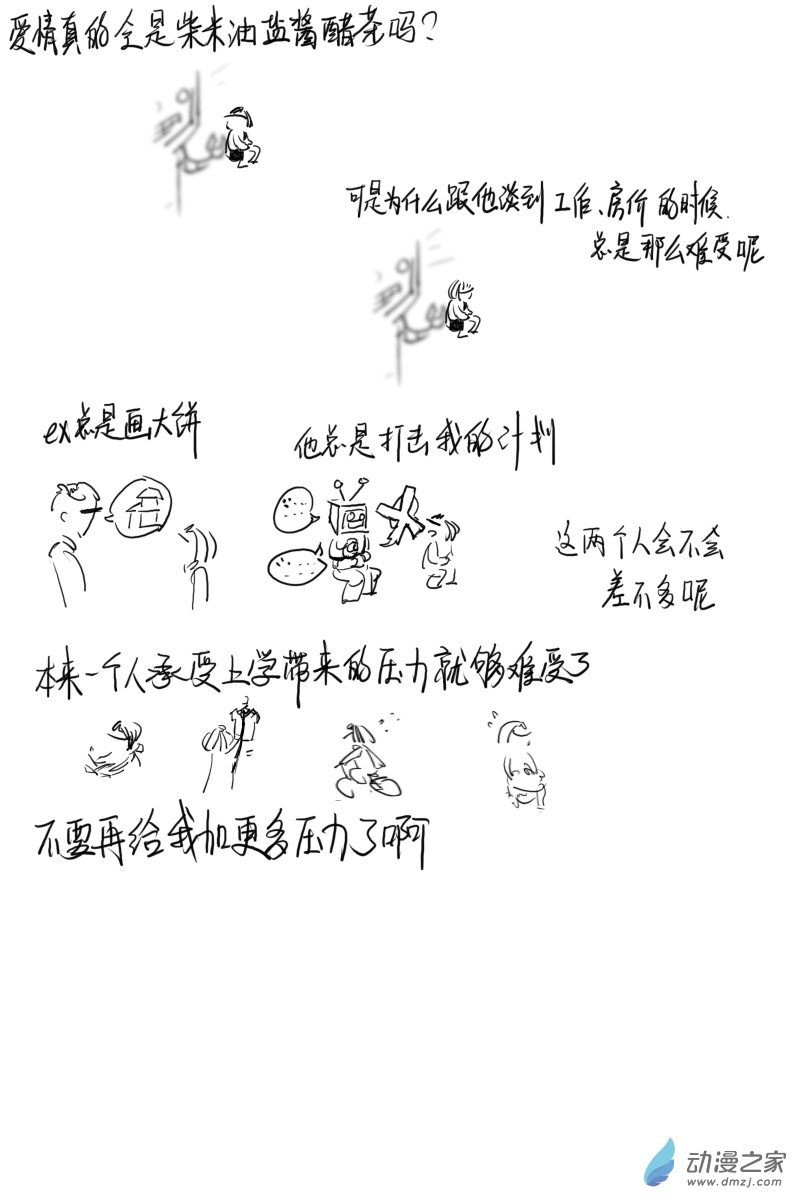 爱情真的全是柴米油盐酱醋茶吗？
可是为什么跟他谈到工作、房价的时候.
总是那么难受呢
ex总是画大饼
他总是打击我的计划
这两个人会不会
差不多呢
本来一个人承受上学带来的压力就够难受了
不要再给我加更多压力了啊
动漫之家
www.dmzj.com